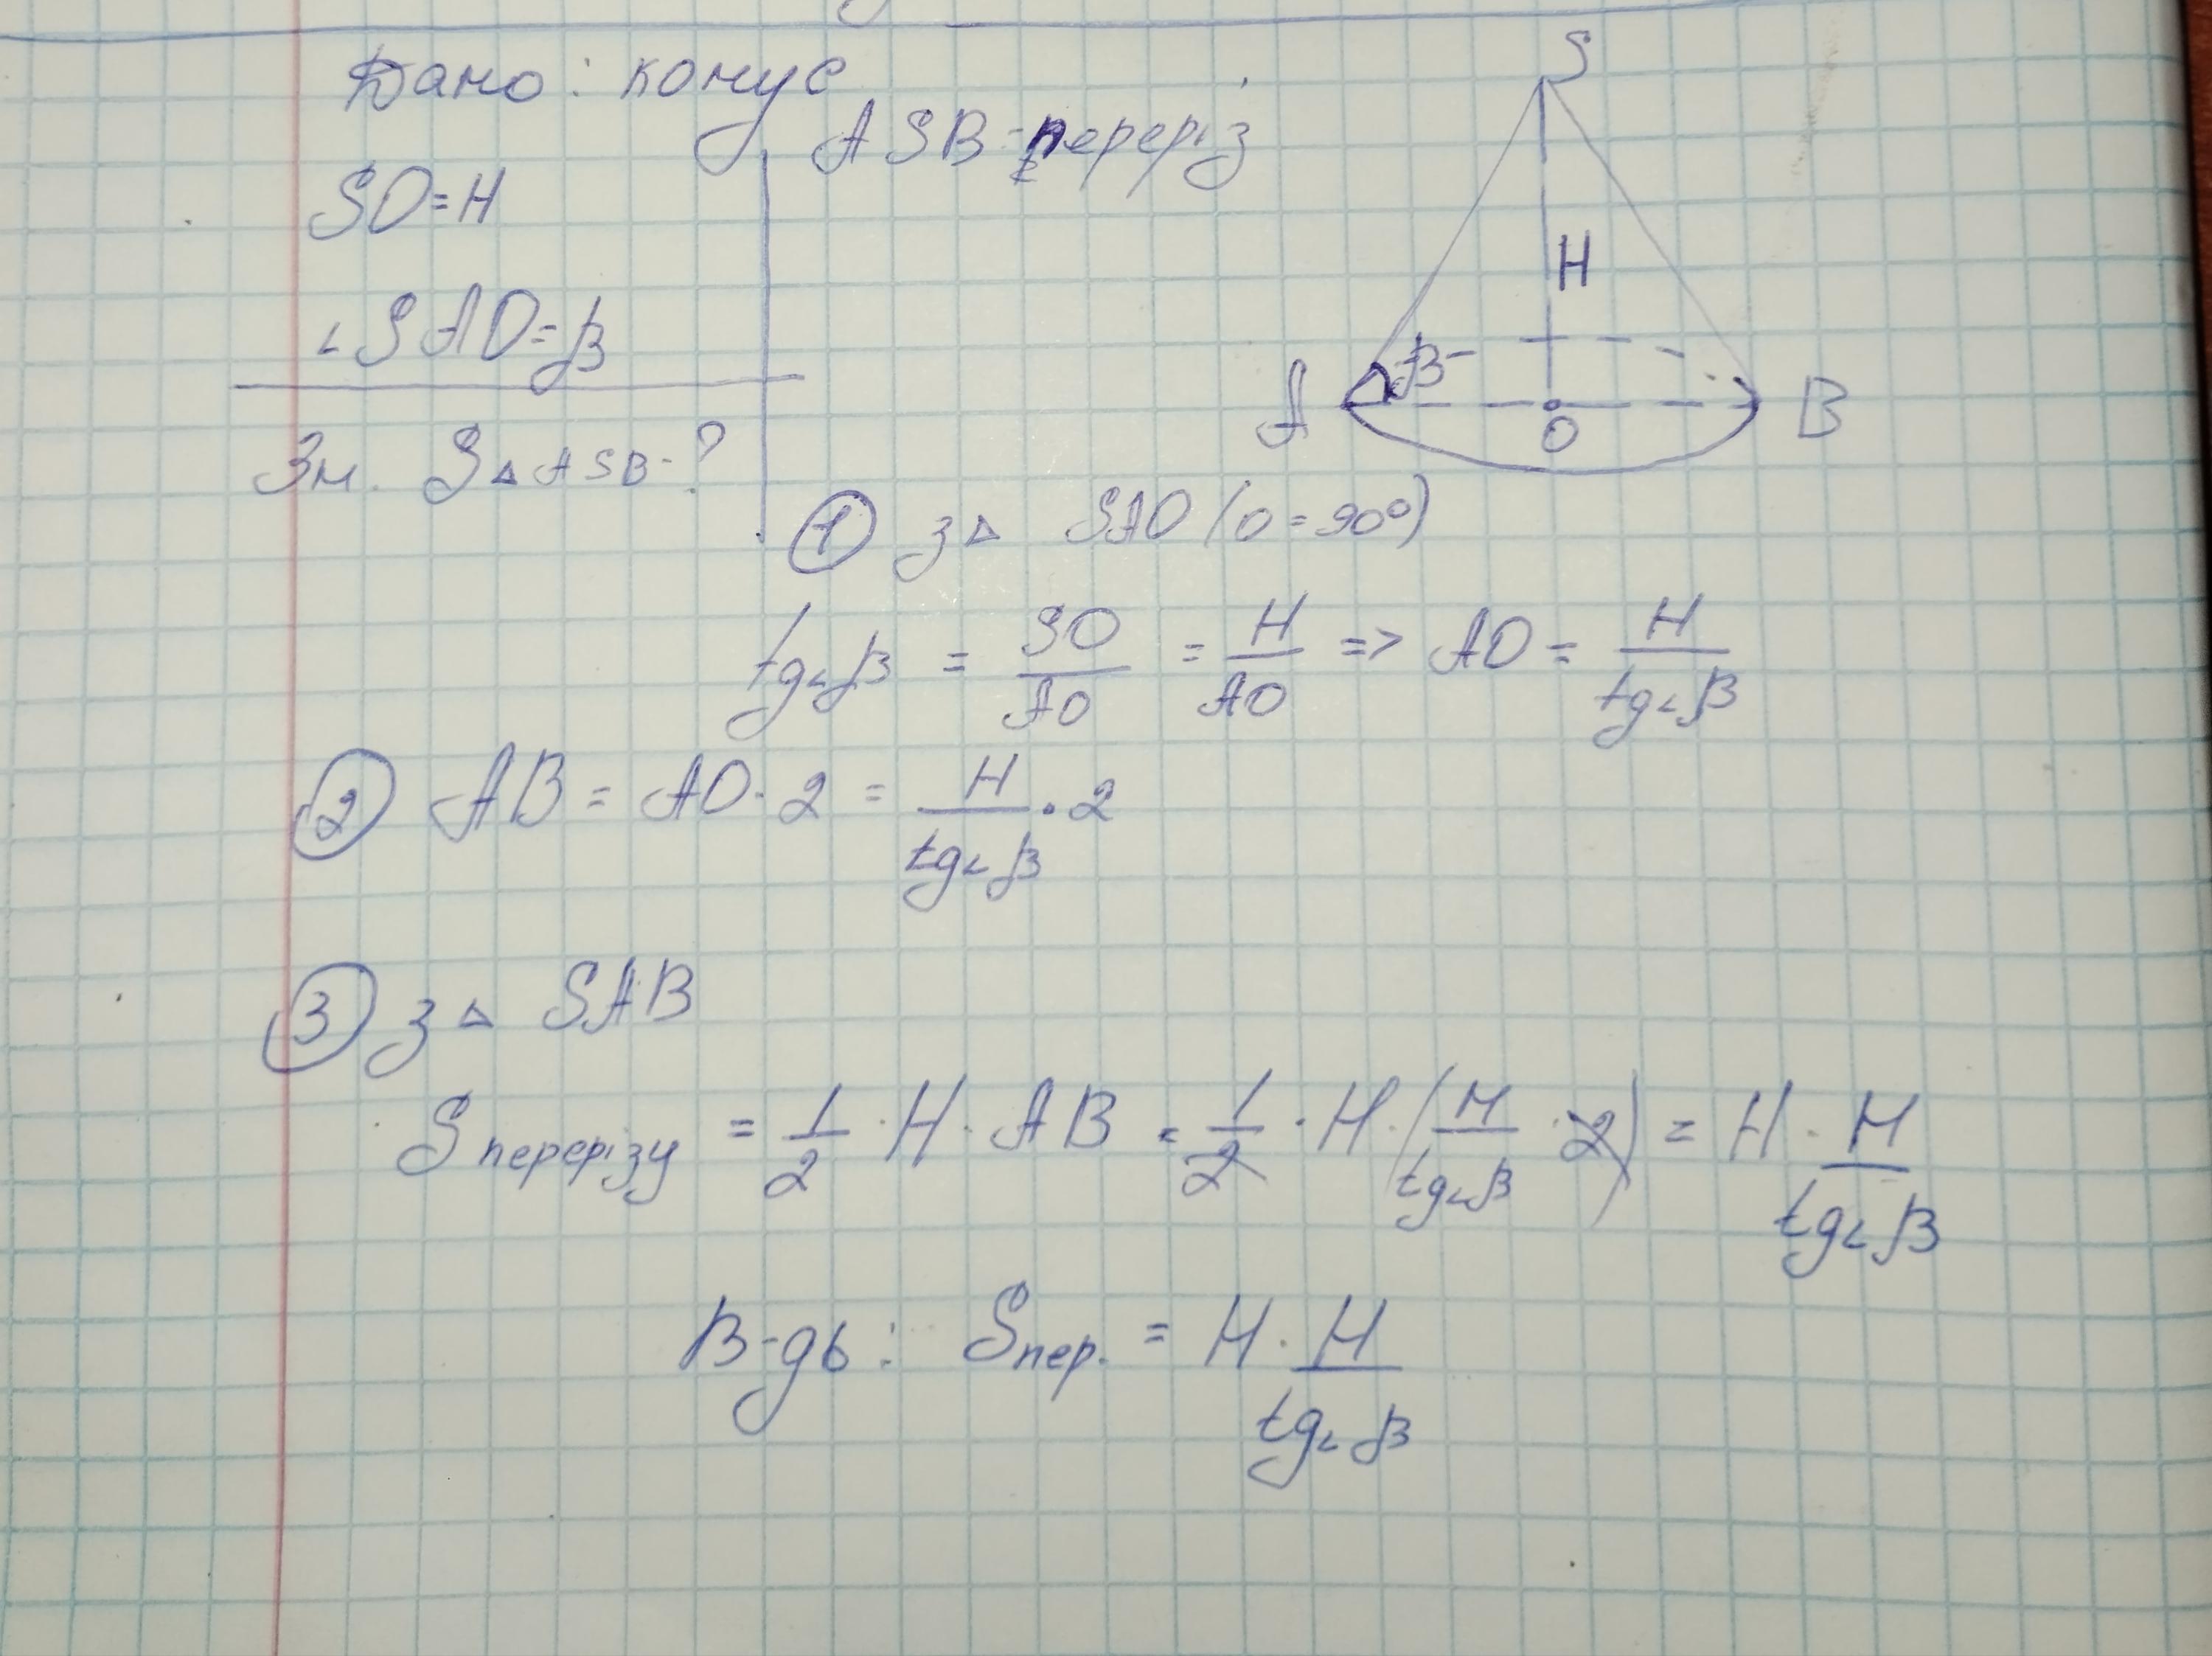 Дано: конус
ASB - переріз
SO=H
∠SAO=β
Зн. S△ASB-?
S
H
A
β
O
B
① з△ SAO (O=90°)
tg∠β = SO/AO = H/AO => AO = H/tg∠β
② AB = AO·2 = H/tg∠β · 2
③ з△ SAB
Sперерізу = 1/2 · H · AB = 1/2 · H · (H/tg∠β · 2) = H · H/tg∠β
В-дь: Sпер. = H · H/tg∠β